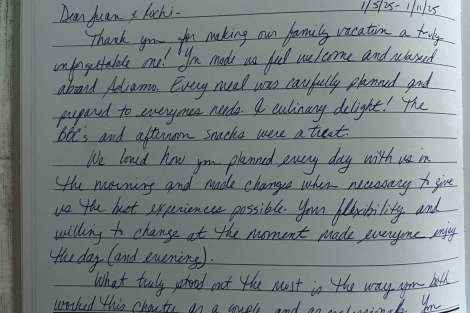 Dear Juan & Rochi - 1/5/25 - 1/11/25
Thank you for making our family vacation a truly
unforgettable one! You made us feel welcome and relaxed
aboard Adiamo. Every meal was carefully planned and
prepared to everyones needs. A culinary delight! The
BBC's and afternoon snacks were a treat.
We loved how you planned every day with us in
the morning and made changes when necessary to give
us the best experiences possible. Your flexibility and
willing to change at the moment made everyone enjoy
the day (and evening).
What truly stood out the most is the way you both
worked this charter as a couple and as professionals. You